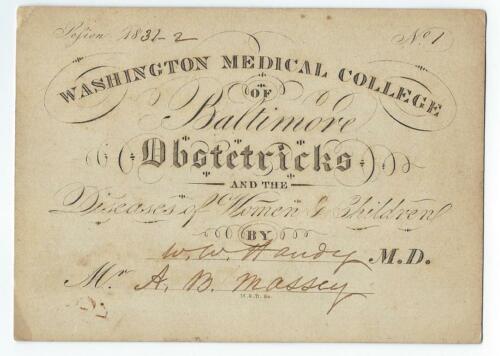 Session 1831-2 No. 1
WASHINGTON MEDICAL COLLEGE
OF
Baltimore
Obstetricks
AND THE
Diseases of Women & Children
BY
W. W. Handy M.D.
Mr. A. B. Massey